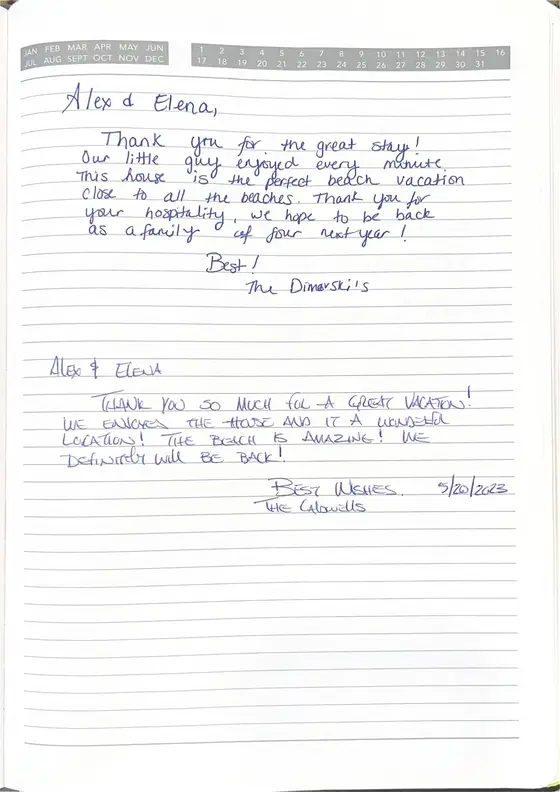 JAN FEB MAR APR MAY JUN
JUL AUG SEPT OCT NOV DEC
1 2 3 4 5 6 7 8 9 10 11 12 13 14 15 16
17 18 19 20 21 22 23 24 25 26 27 28 29 30 31
Alex & Elena,
Thank you for the great stay!
Our little guy enjoyed every minute.
This house is the perfect beach vacation
close to all the beaches. Thank you for
your hospitality, we hope to be back
as a family of four next year!
Best!
The Dimovski's
ALEX & ELENA
THANK YOU SO MUCH FOR A GREAT VACATION!
WE ENJOYED THE HOUSE AND IT A WONDERFUL
LOCATION! THE BEACH IS AMAZING! WE
DEFINITELY WILL BE BACK!
BEST WISHES. 5/20/2023
THE CALDWELLS